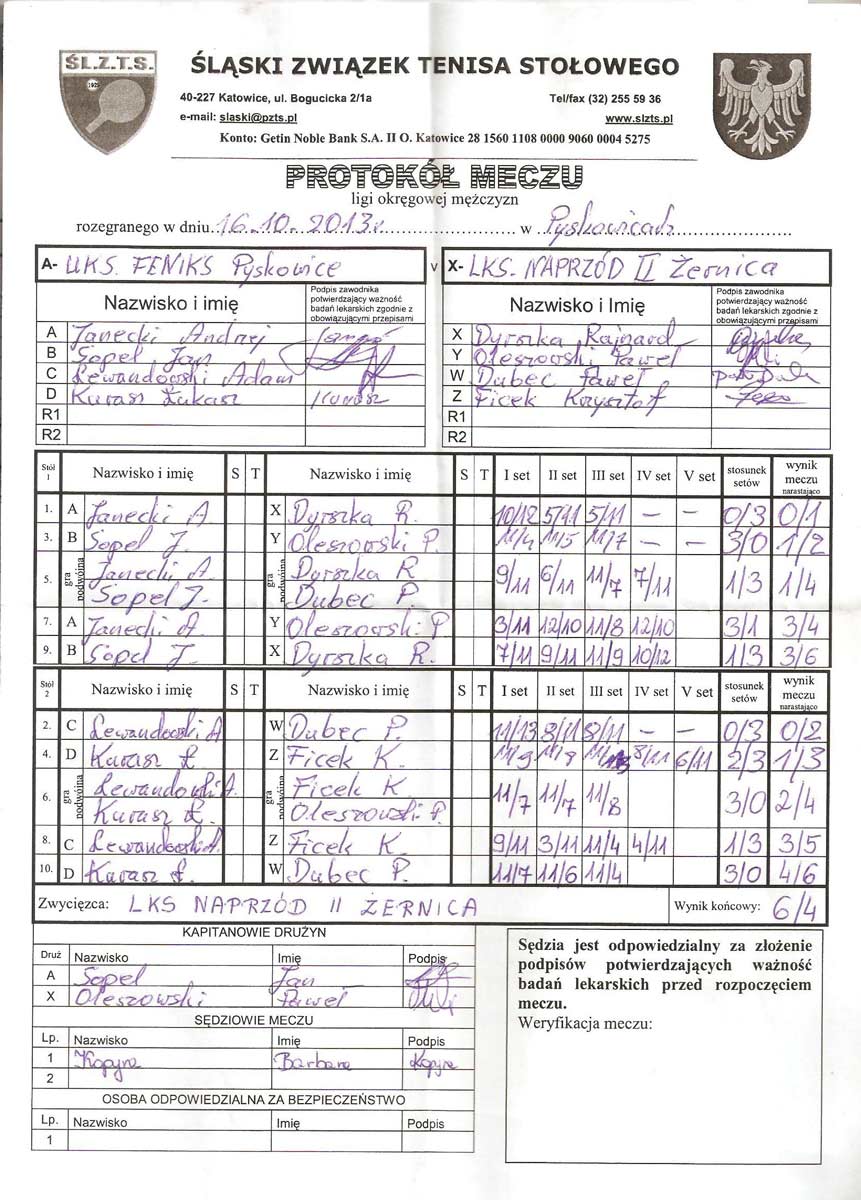 ŚL.Z.T.S.
1925
ŚLĄSKI ZWIĄZEK TENISA STOŁOWEGO
40-227 Katowice, ul. Bogucicka 2/1a Tel/fax (32) 255 59 36
e-mail: slaski@pzts.pl www.slzts.pl
Konto: Getin Noble Bank S.A. II O. Katowice 28 1560 1108 0000 9060 0004 5275
PROTOKÓŁ MECZU
ligi okręgowej mężczyzn
rozegranego w dniu 16.10.2013r w Pyskowicach
A- UKS. FENIKS Pyskowice v X- LKS. NAPRZÓD II Żernica
Nazwisko i imię Podpis zawodnika potwierdzający ważność badań lekarskich zgodnie z obowiązującymi przepisami Nazwisko i Imię Podpis zawodnika potwierdzający ważność badań lekarskich zgodnie z obowiązującymi przepisami
A Janecki Andrzej X Dyrszka Rajnard
B Sopel Jan Y Oleszowski Paweł
C Lewandowski Adam W Dubec Paweł
D Kurasz Łukasz Kurasz Z Ficek Krzysztof
R1 R1
R2 R2
Stół 1 Nazwisko i imię S T Nazwisko i imię S T I set II set III set IV set V set stosunek setów wynik meczu narastająco
1. A Janecki A. X Dyrszka R. 10/12 5/11 5/11 – – 0/3 0/1
3. B Sopel J. Y Oleszowski P. 11/4 11/5 11/7 – – 3/0 1/2
5. gra podwójna Janecki A. gra podwójna Dyrszka R 9/11 6/11 11/7 7/11 1/3 1/4
Sopel J. Dubec P.
7. A Janecki A. Y Oleszowski P 3/11 12/10 11/8 12/10 3/1 3/4
9. B Sopel J. X Dyrszka R. 7/11 9/11 11/9 10/12 1/3 3/6
Stół 2 Nazwisko i imię S T Nazwisko i imię S T I set II set III set IV set V set stosunek setów wynik meczu narastająco
2. C Lewandowski A W Dubec P. 11/13 8/11 8/11 – – 0/3 0/2
4. D Kurasz Ł. Z Ficek K. 11/9 11/8 8/11 6/11 2/3 1/3
6. gra podwójna Lewandowski A. gra podwójna Ficek K 11/7 11/7 11/8 3/0 2/4
Kurasz Ł. Oleszowski P.
8. C Lewandowski A. Z Ficek K. 9/11 3/11 11/4 4/11 1/3 3/5
10. D Kurasz Ł. W Dubec P. 11/7 11/6 11/4 3/0 4/6
Zwycięzca: LKS NAPRZÓD II ŻERNICA Wynik końcowy: 6/4
KAPITANOWIE DRUŻYN
Druż Nazwisko Imię Podpis
A Sopel Jan
X Oleszowski Paweł
SĘDZIOWIE MECZU
Lp. Nazwisko Imię Podpis
1 Kopyra Barbara Kopyra
2
OSOBA ODPOWIEDZIALNA ZA BEZPIECZEŃSTWO
Lp. Nazwisko Imię Podpis
1
Sędzia jest odpowiedzialny za złożenie
podpisów potwierdzających ważność
badań lekarskich przed rozpoczęciem
meczu.
Weryfikacja meczu: